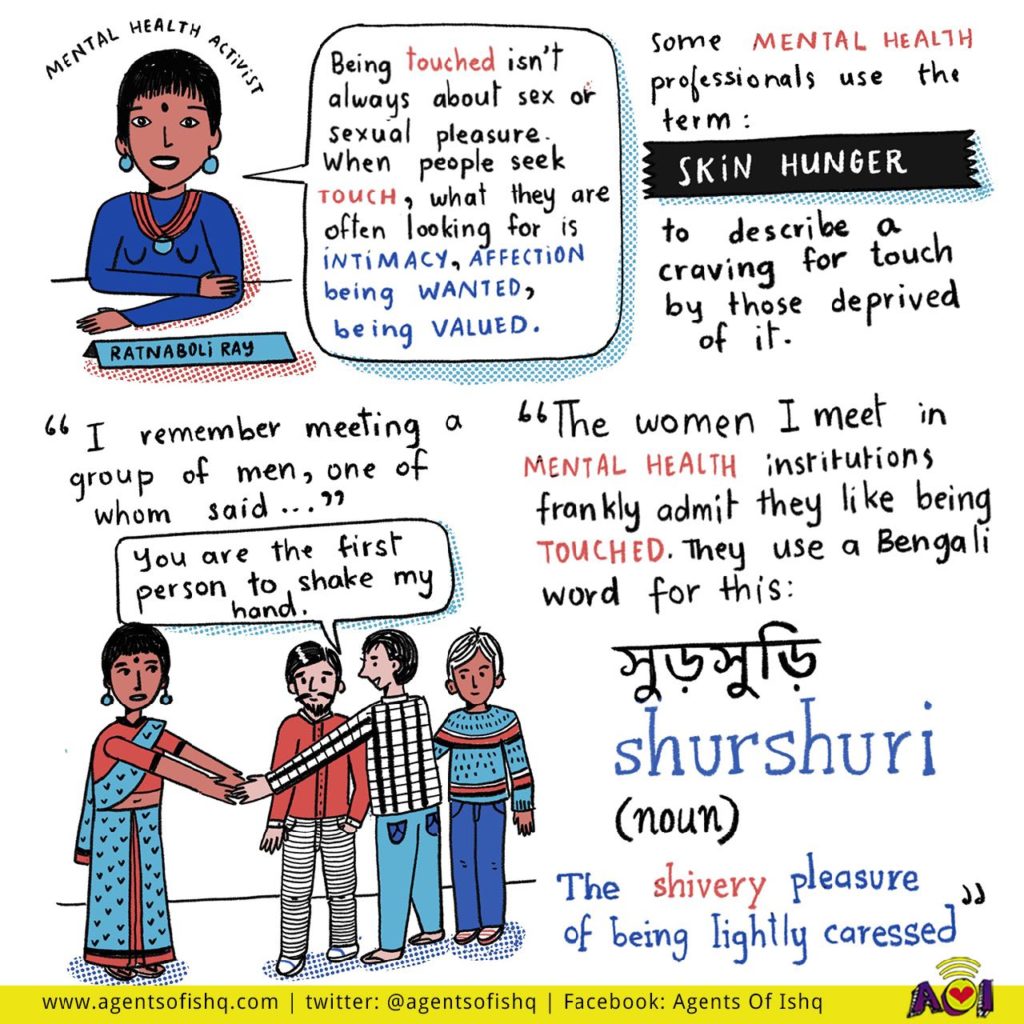 MENTAL HEALTH ACTIVIST
RATNABOLI RAY
Being touched isn't
always about sex or
sexual pleasure.
When people seek
TOUCH, what they are
often looking for is
INTIMACY, AFFECTION
being WANTED,
being VALUED.
Some MENTAL HEALTH
professionals use the
term:
SKIN HUNGER
to describe a
craving for touch
by those deprived
of it.
“I remember meeting a
group of men, one of
whom said ...”
You are the first
person to shake my
hand.
“The women I meet in
MENTAL HEALTH institutions
frankly admit they like being
TOUCHED. They use a Bengali
word for this:
সুড়সুড়ি
shurshuri
(noun)
The shivery pleasure
of being lightly caressed”
www.agentsofishq.com | twitter: @agentsofishq | Facebook: Agents Of Ishq
AOI